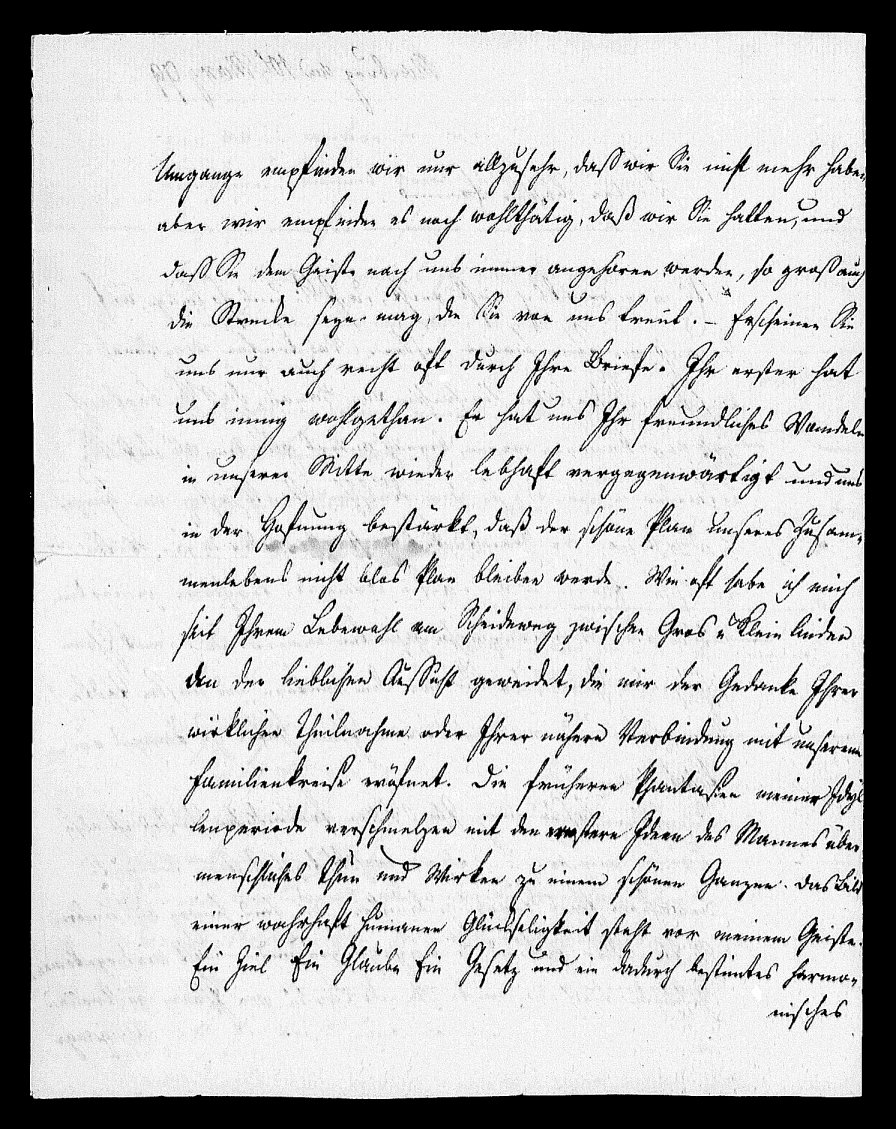 Umgange empfinden wir nur allzusehr, daß wir Sie nicht mehr haben,
aber wir empfinden es noch wohlthätig, daß wir Sie hatten, und
daß Sie dem Geiste nach uns immer angehören werden, so groß auch
die Strecke seyn mag, die Sie von uns trennt. – Erscheinen Sie
uns nur auch recht oft durch Ihre Briefe. Ihr erster hat
uns innig wohlgethan. Er hat uns Ihr freundliches Wandeln
in unserer Mitte wieder lebhaft vergegenwärtigt und uns
in der Hofnung bestärkt, daß der schöne Plan unseres Zusam-
menlebens nicht blos Plan bleiben werde. Wie oft habe ich mich
seit Ihrem Lebewohl am Scheideweg zwischen Gros u Klein Linden
an der lieblichen Aussicht geweidet, die mir der Gedanke Ihrer
wirklichen Theilnahme oder Ihrer nähern Verbindung mit unserem
Familienkreise eröfnet. Die früheren Phantasien meiner Idyl
lenperiode verschmelzen mit den ernstern Ideen des Mannes über
menschliches Thun und Wirken zu einem schönen Ganzen. Das Bild
einer wahrhaft humanen Glückseligkeit steht vor meinem Geiste.
Ein Ziel Ein Glaube Ein Gesetz und ein dadurch bestimtes harmo-
nisches